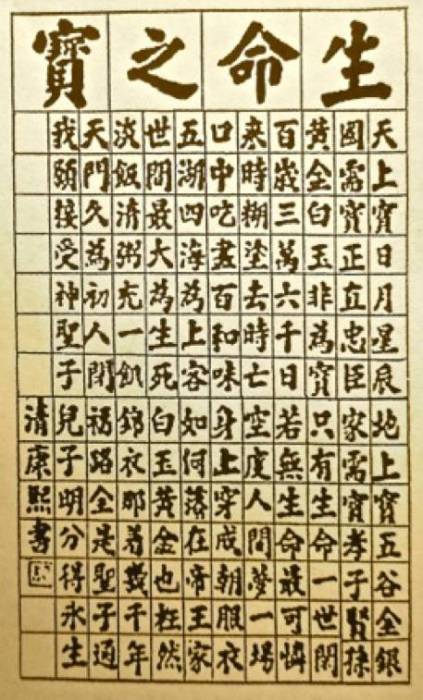 生命之寶
天上寶日月星辰地上寶五谷金銀
國需寶正直忠臣家需寶孝子賢孫
黃金白玉非為寶只有生命一世閒
百歲三萬六千日若無生命最可憐
来時糊塗去時亡空度人間夢一場
口中吃盡百和味身上穿成朝服衣
五湖四海為上客如何落在帝王家
世間最大為生死白玉黃金也枉然
淡飯清粥充一飢錦衣那着幾千年
天門久為初人閉福路全是聖子通
我願接受神聖子兒子明分得永生
清康熙書